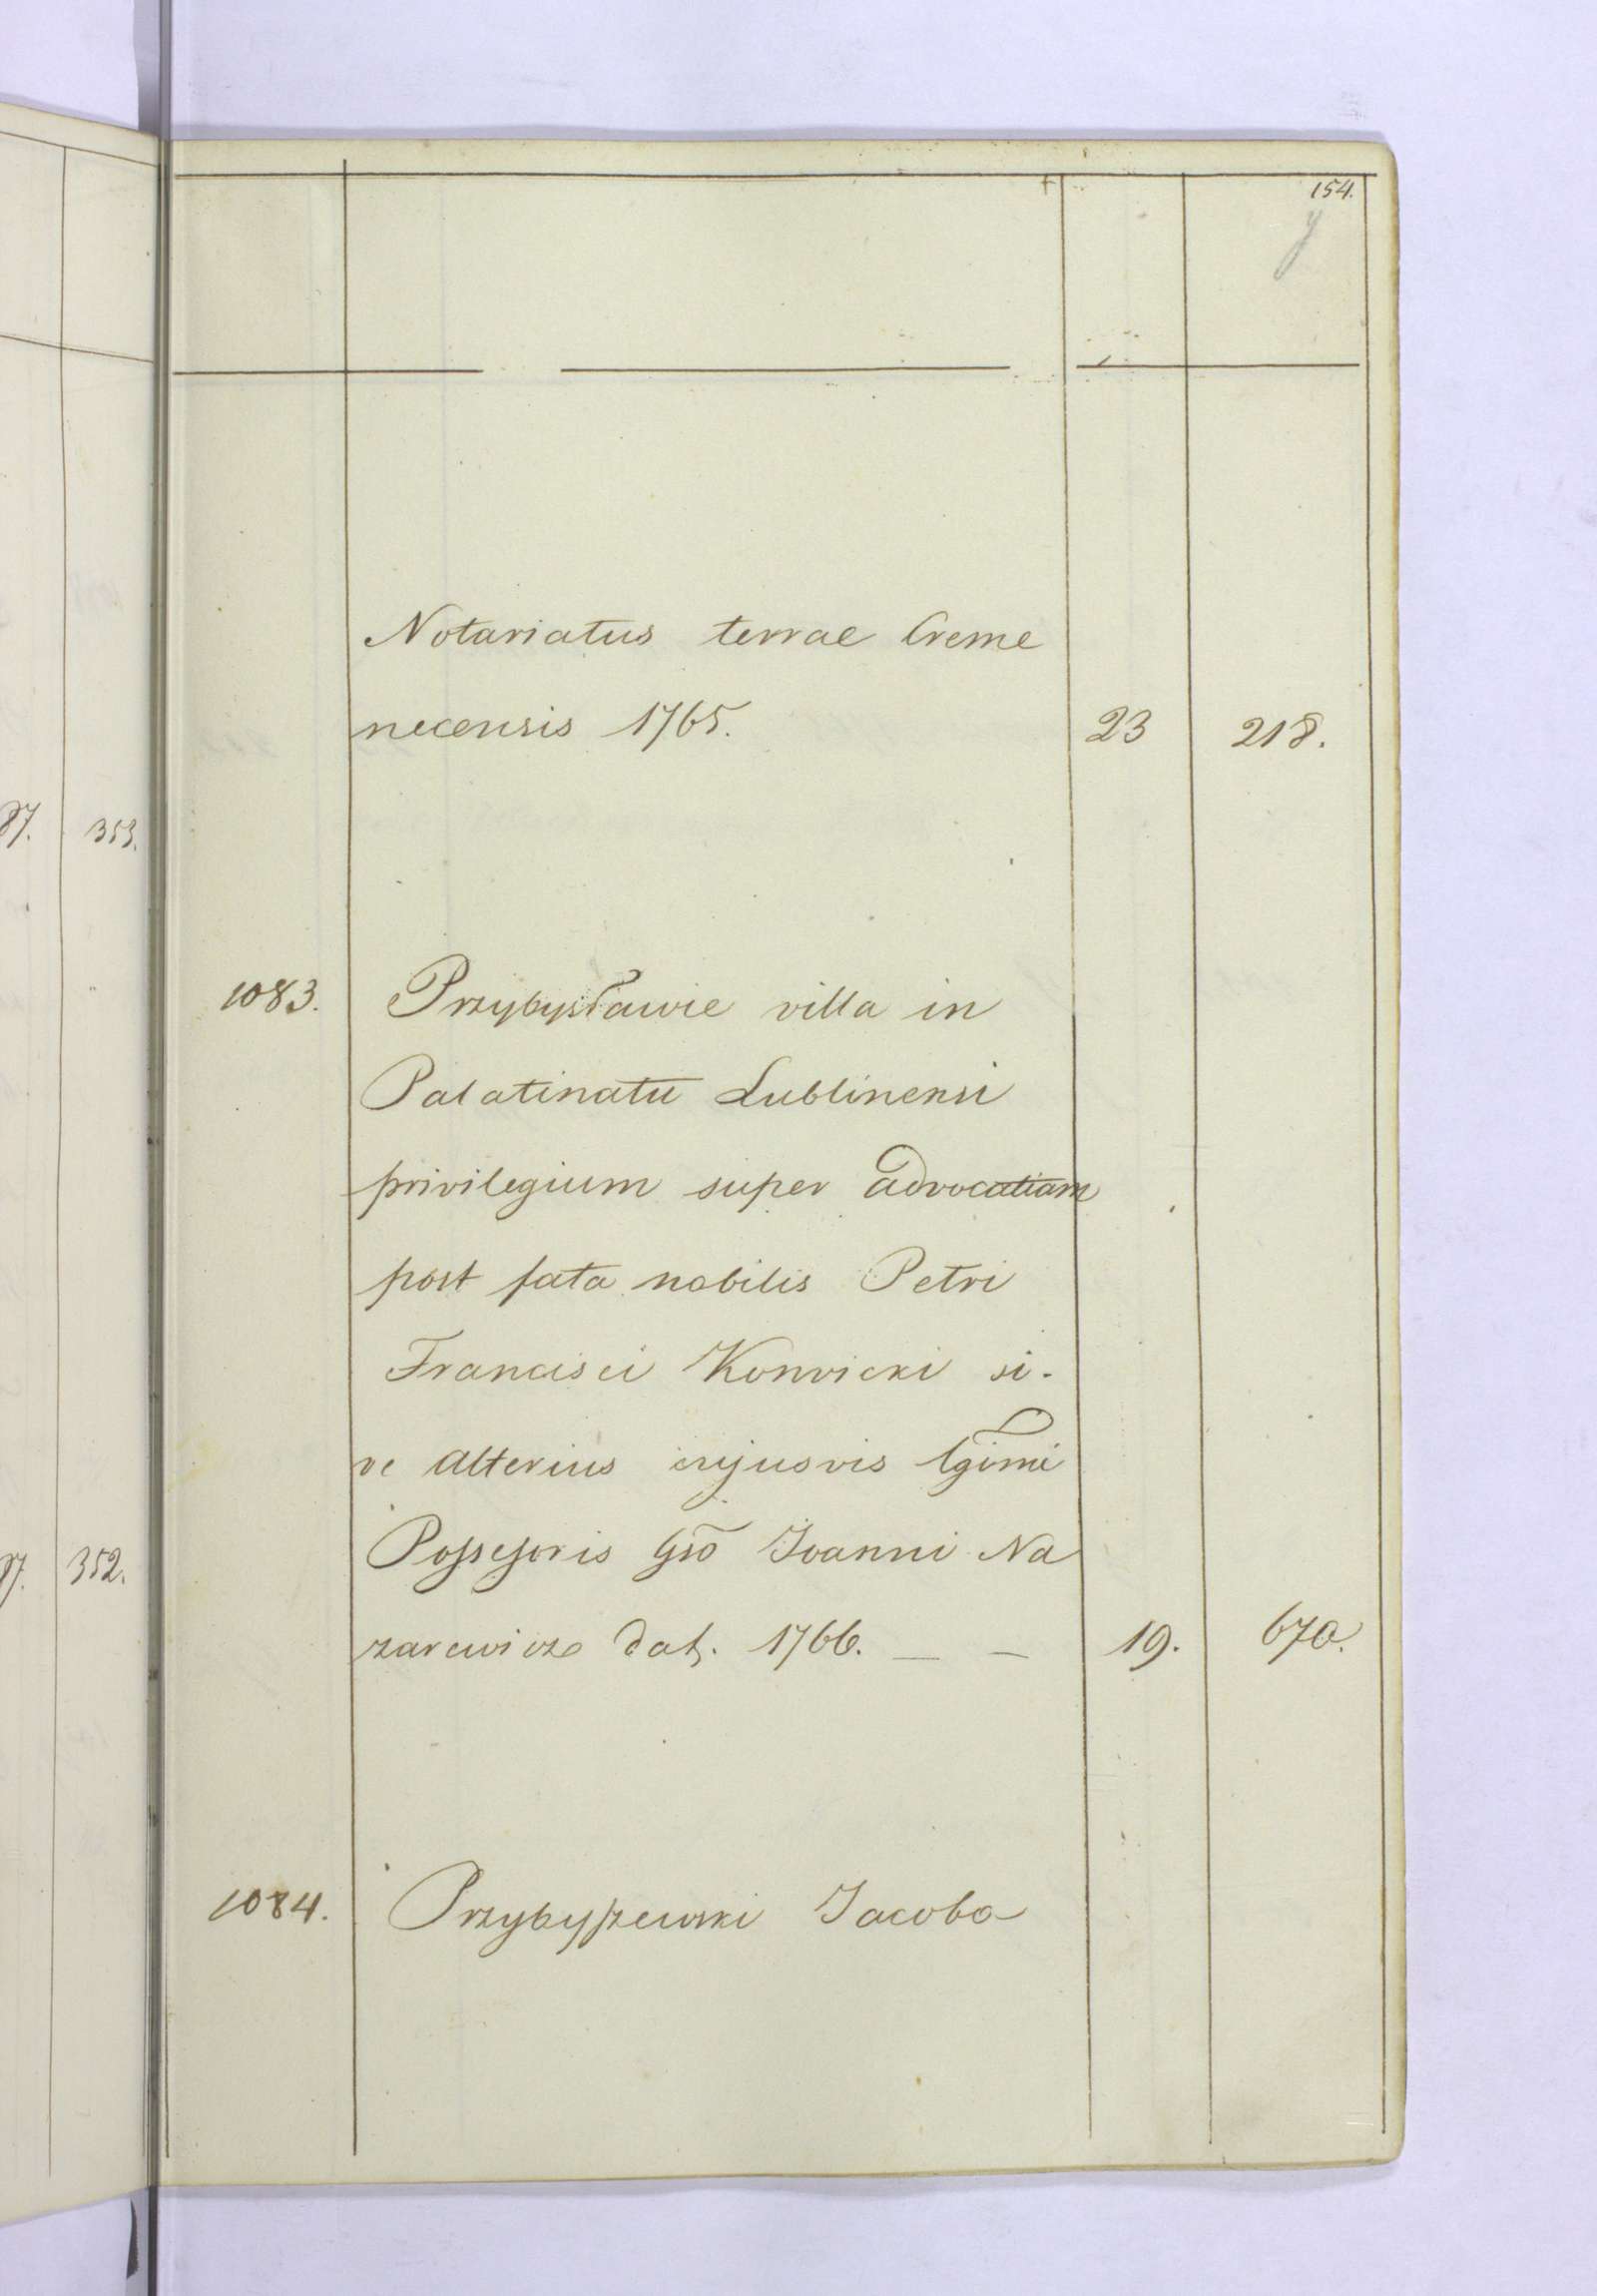 154.
y
Notariatus terrae Creme
necensis 1765. 23 218.
87. 353.
1083. Przybysławie villa in
Palatinatu Lublinensi
privilegium super advocatiam
post fata nobilis Petri
Francisci Konvicki si-
ve alterius cujusvis lgimi
Possessoris Gso Joanni Na
zarewicz dat. 1766. — — 19. 670.
87. 352.
1084. Przybyszewski Jacobo